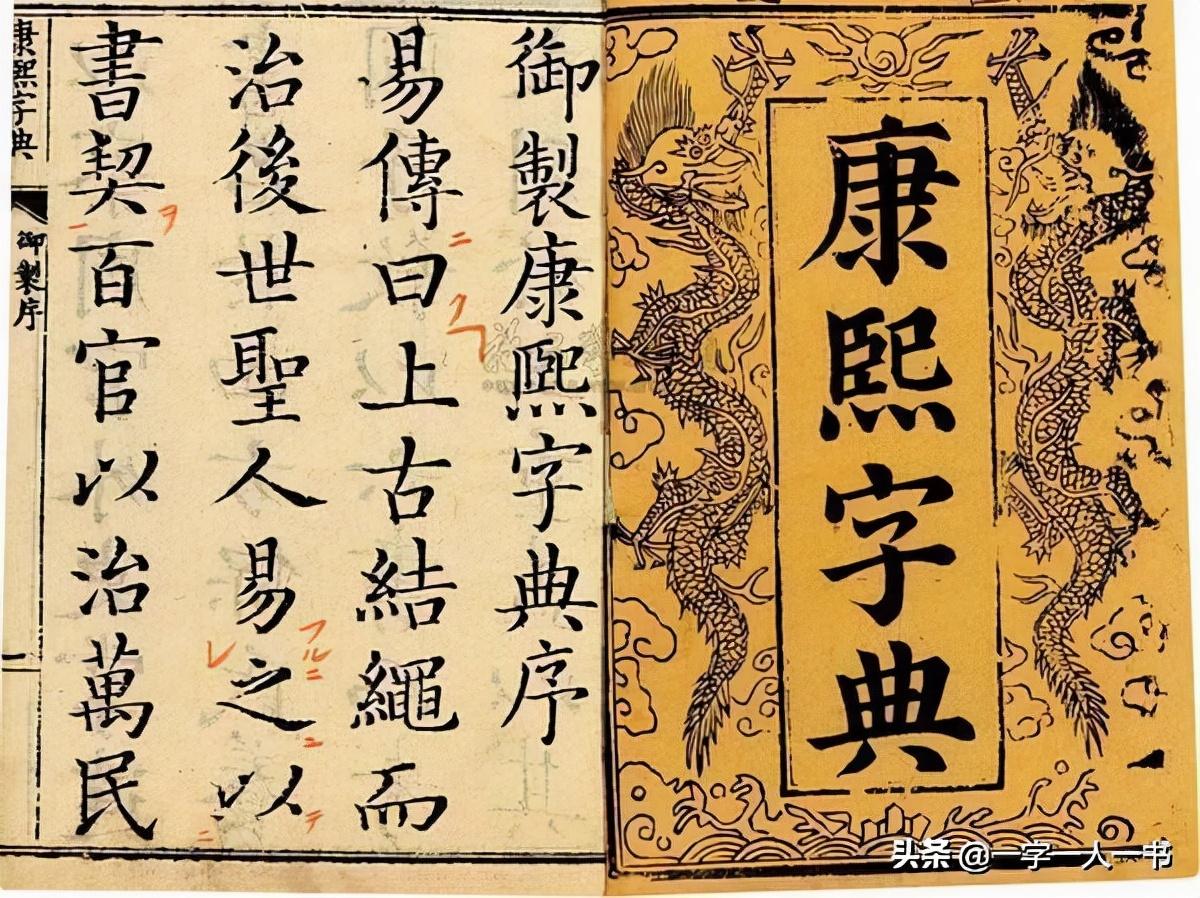 康熙字典
御製康熙字典序
易傳曰上古結繩而
治後世聖人易之以
書契百官以治萬民
康熙字典
御製序
ニ
ク
フルニ
レ
ニ
テ
ニ
ヲ
一
头条 @一字一人一书